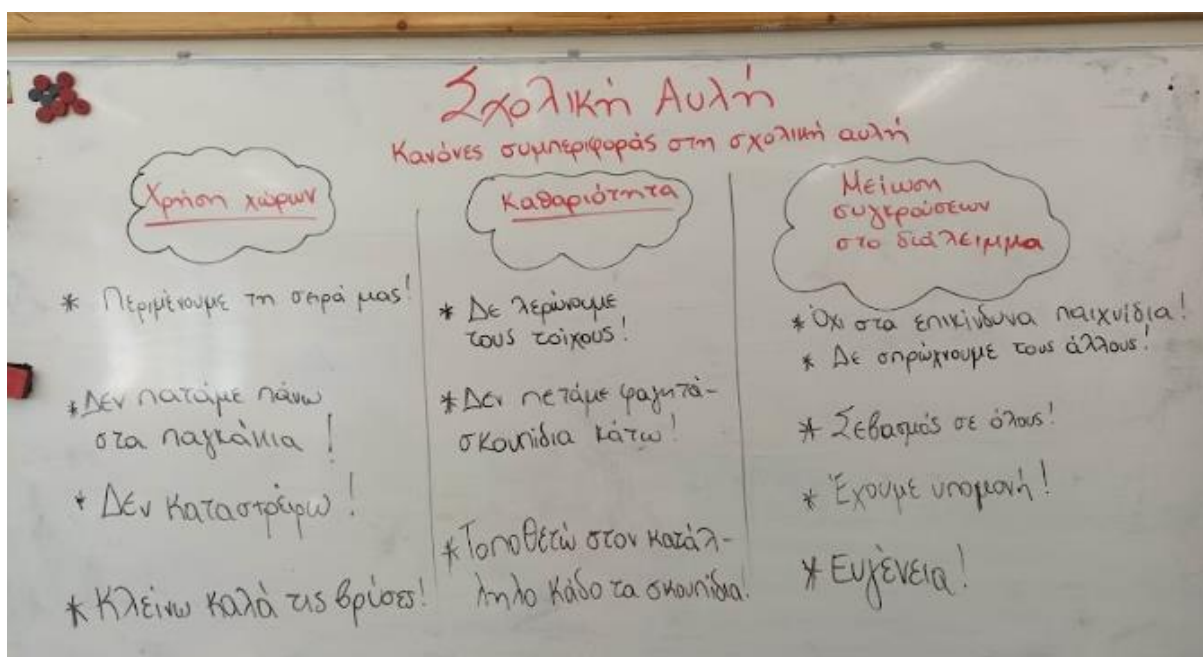 Σχολική Αυλή
Κανόνες συμπεριφοράς στη σχολική αυλή
Χρήση χώρων
* Περιμένουμε τη σειρά μας!
* Δεν πατάμε πάνω
στα παγκάκια!
* Δεν καταστρέφω!
* Κλείνω καλά τις βρύσες!
Καθαριότητα
* Δε λερώνουμε
τους τοίχους!
* Δεν πετάμε φαγητά-
σκουπίδια κάτω!
* Τοποθετώ στον κατάλ-
ληλο κάδο τα σκουπίδια!
Μείωση
συγκρούσεων
στο διάλειμμα
* Όχι στα επικίνδυνα παιχνίδια!
* Δε σπρώχνουμε τους άλλους!
* Σεβασμός σε όλους!
* Έχουμε υπομονή!
* Ευγένεια!